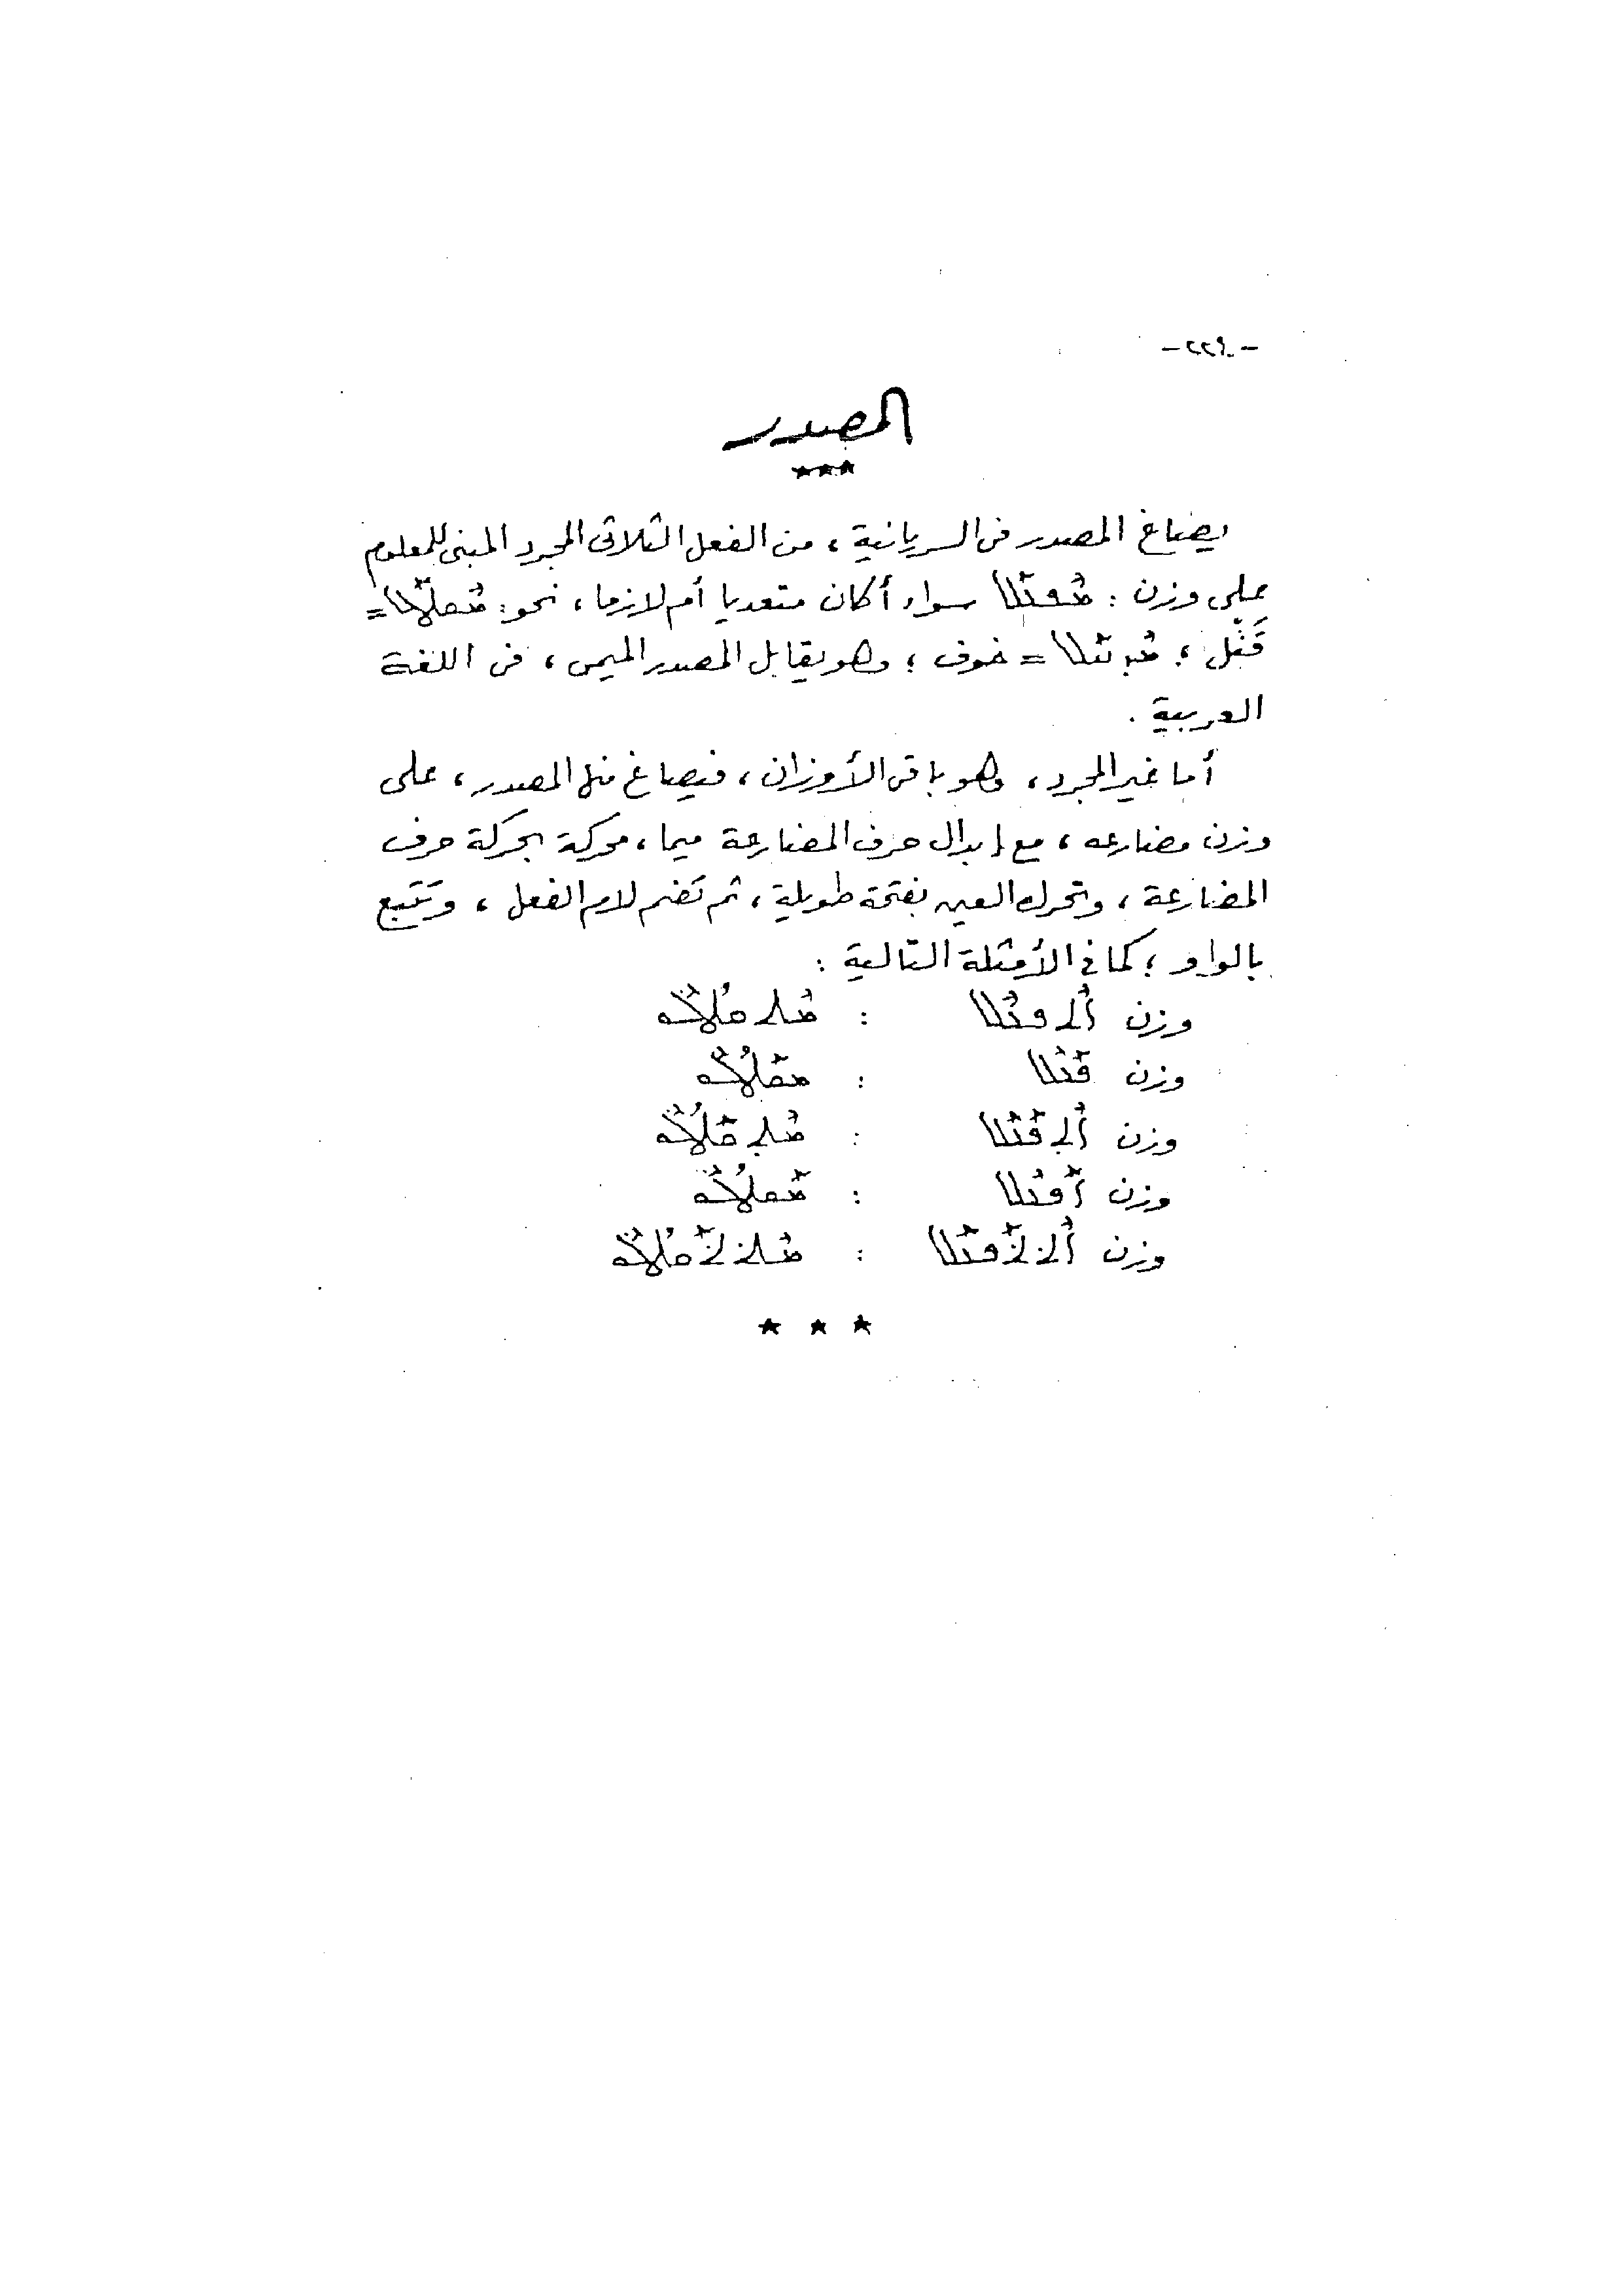 - ٢٢٩ -
المصدر
***
يصاغ المصدر فى السريانية ، من الفعل الثلاثى المجرد المبنى للمعلوم
على وزن : ܡܶܦܥܰܠ سواء أكان متعديا أم لازما ، نحو : ܡܶܩܛܰܠ =
قَتْل ؛ ܡܶܕܚܰܠ = خوف ؛ وهو يقابل المصدر الميمى ، فى اللغة
العربية .
أما غير المجرد ، وهو باقى الأوزان ، فيصاغ منها المصدر ، على
وزن مضارعه ، مع إبدال حرف المضارعة ميما ، محركة بحركة حرف
المضارعة ، وتحرك العين بفتحة طويلة ، ثم تضم لام الفعل ، وتَتْبع
بالواو ؛ كما فى الأمثلة التالية :
وزن ܐܶܬܦܥܶܠ : ܡܶܬܩܛܳܠܽܘ
وزن ܦܰܥܶܠ : ܡܩܰܛܳܠܽܘ
وزن ܐܶܬܦܰܥܰܠ : ܡܶܬܩܰܛܳܠܽܘ
وزن ܐܰܦܥܶܠ : ܡܰܩܛܳܠܽܘ
وزن ܐܶܬܬܰܦܥܰܠ : ܡܶܬܬܰܩܛܳܠܽܘ
* * *